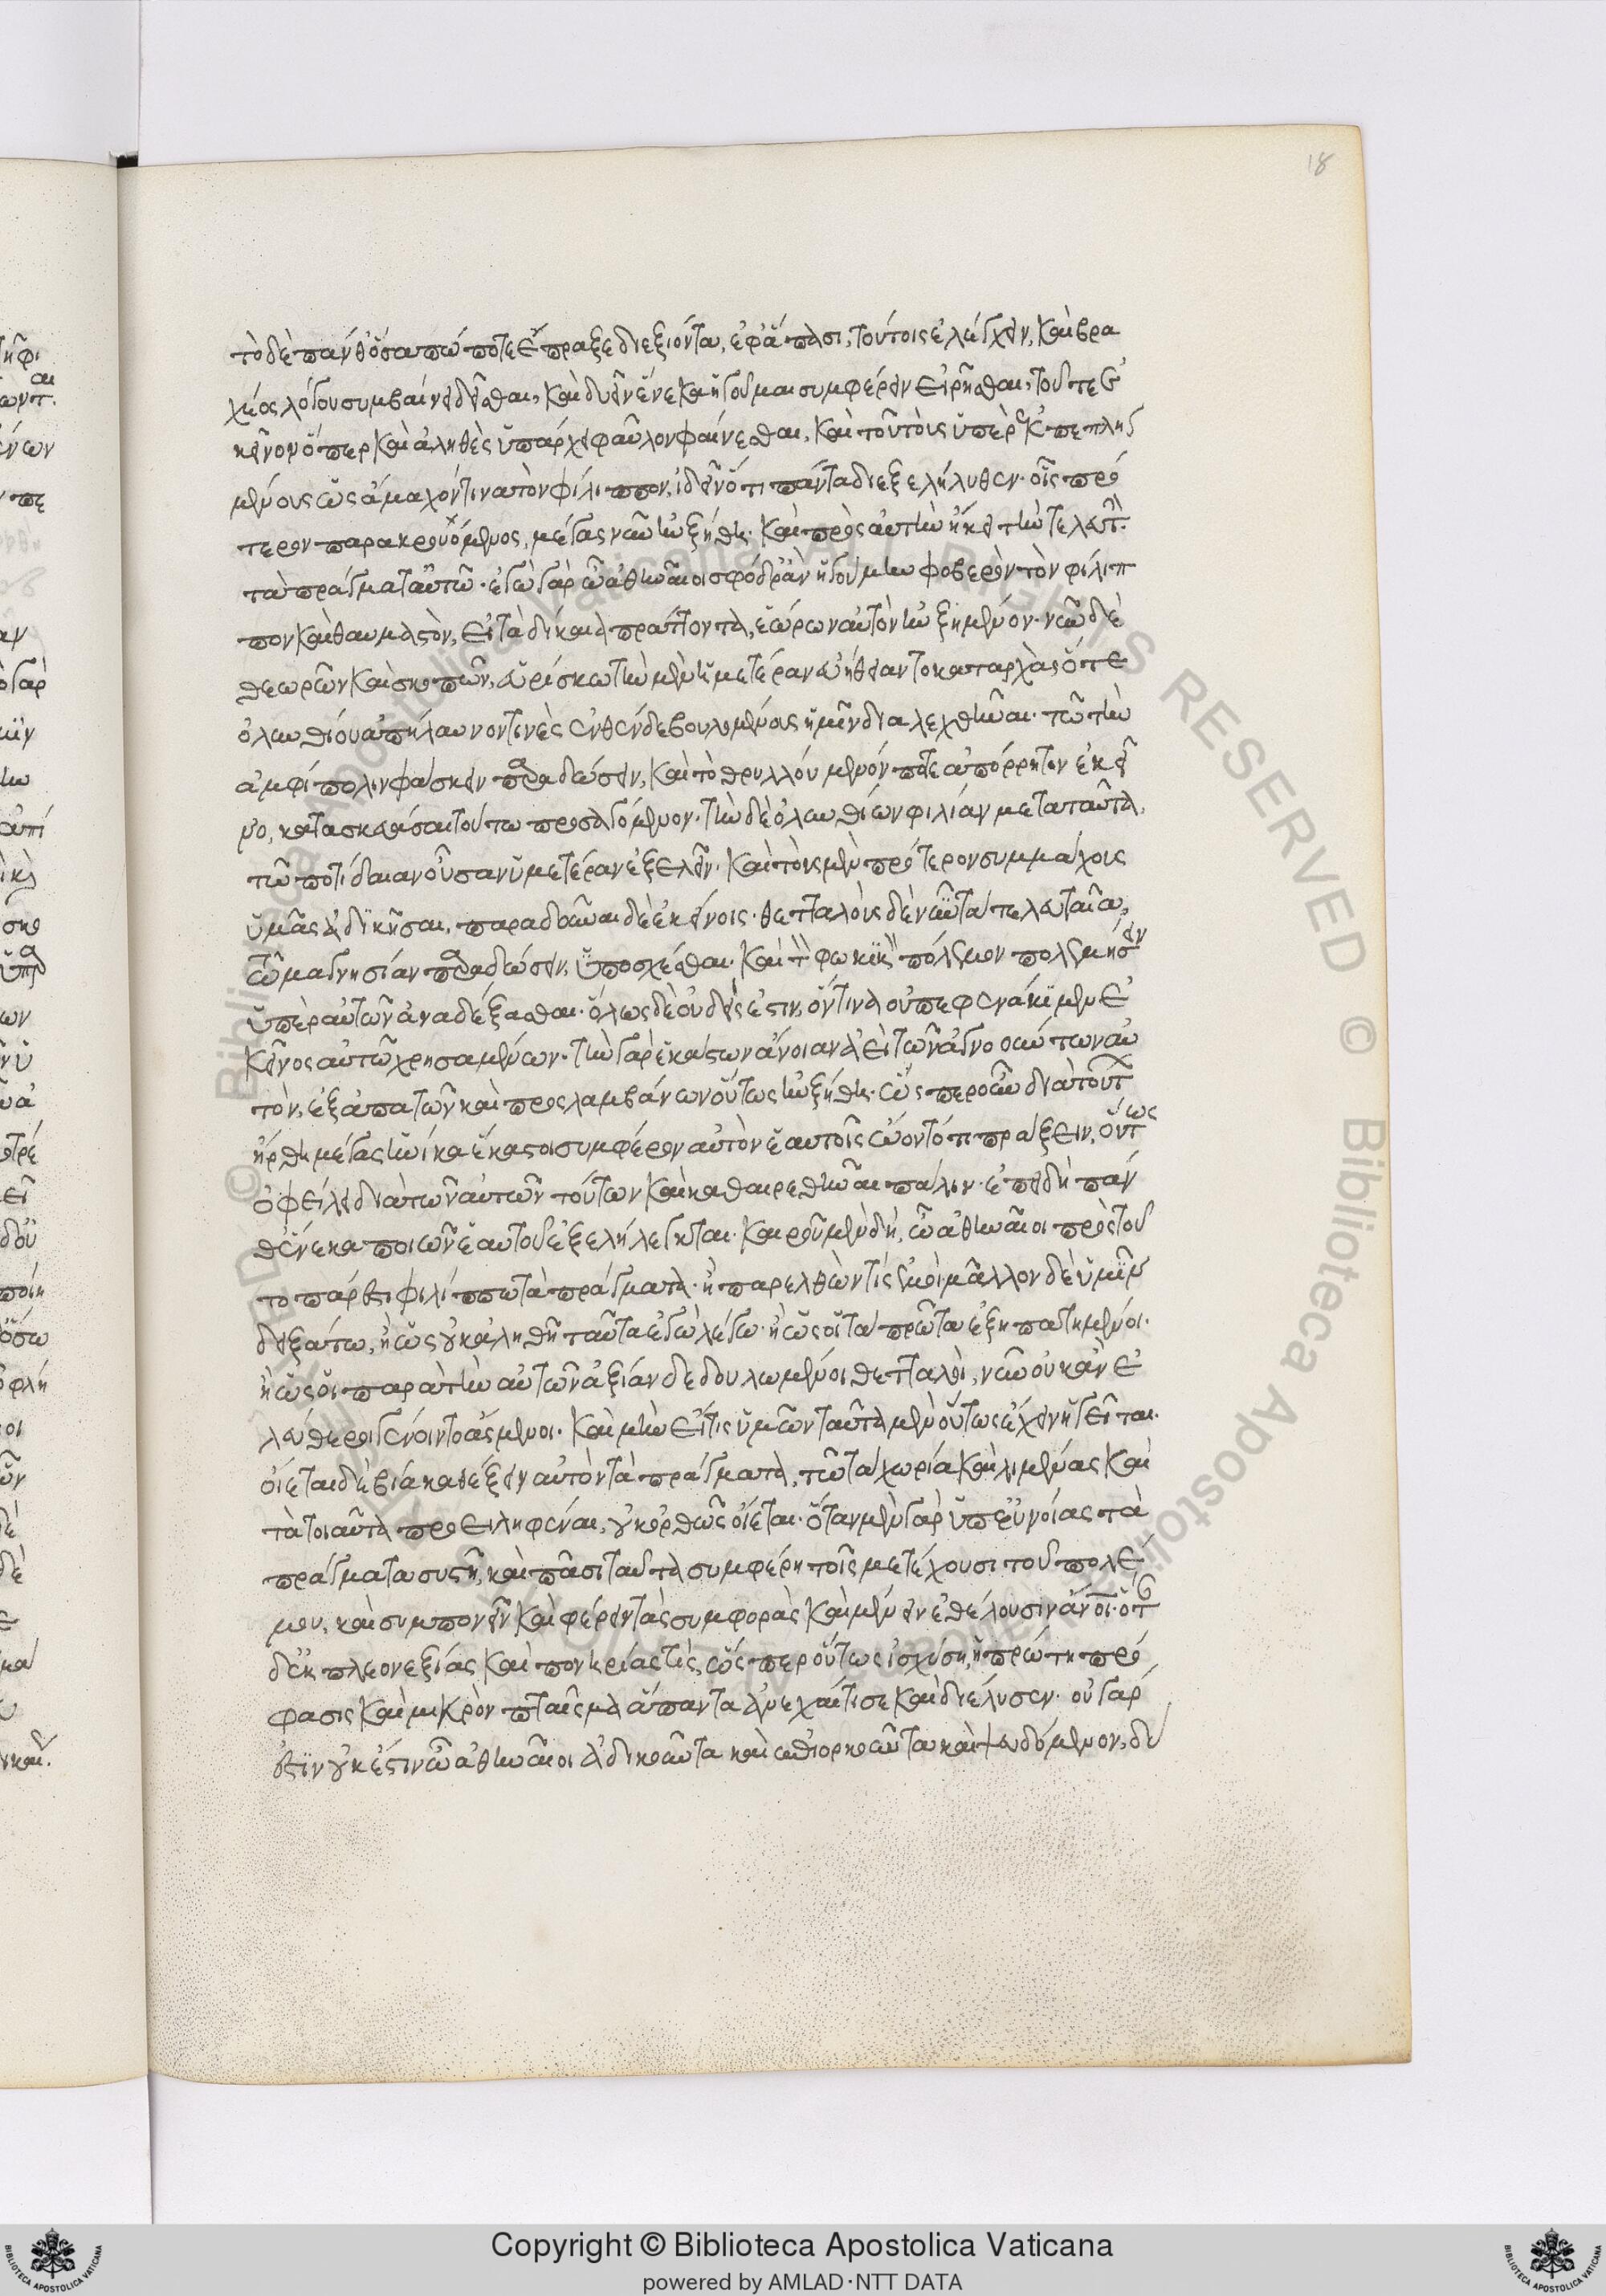 18
τὸ δὲ πάνθ' ὅσα πώποτε ἔπραξε διεξιόντα, ἐφ' ἅπασι τούτοις ἐλέγχειν, καὶ βρα
χέος λόγου συμβαίνει δεῖσθαι, καὶ δυεῖν ἕνεκα ἡγοῦμαι συμφέρειν εἰρῆσθαι, τοῦ τε ἐ
κεῖνον ὅπερ καὶ ἀληθὲς ὑπάρχει φαῦλον φαίνεσθαι, καὶ τοὺς ὑπερεκπεπληγ
μένους ὡς ἄμαχόν τινα τὸν φίλιππον, ἰδεῖν ὅτι πάντα διεξελήλυθεν· οἷς πρό
τερον παρακρουόμενος, μέγας νῦν ηὐξήθη· καὶ πρὸς αὐτὴν ἥκει τὴν τελευτ.
τὰ πράγματα αὐτῷ· ἐγὼ γὰρ ὦ ἀθηναῖοι σφόδρ' ἂν ἡγούμην φοβερὸν τὸν φίλιπ
πον καὶ θαυμαστὸν, εἰ τὰ δίκαια πράττοντα, ἑώρων αὐτὸν ηὐξημένον· νῦν δὲ
θεωρῶν καὶ σκοπῶν, εὑρίσκω τὴν μὲν ἡμετέραν εὐήθειαν τὸ καταρχὰς ὅτε
ὀλυνθίους ἀπήλαυνόν τινες ἐνθένδε βουλομένους ἡμῖν διαλεχθῆναι· τῷ τὴν
ἀμφίπολιν φάσκειν παραδώσειν, καὶ τὸ θρυλλούμενόν ποτε ἀπόρρητον ἐκεῖ
νο, κατασκευάσαι τούτω προσαγόμενον· τὴν δὲ ὀλυνθίων φιλίαν μετὰ ταῦτα,
τῷ ποτίδαιαν οὖσαν ὑμετέραν ἐξελεῖν· καὶ τοὺς μὲν πρότερον συμμάχους
ὑμᾶς ἀδικῆσαι, παραδοῦναι δὲ ἐκείνοις· θετταλοὺς δὲ νῦν τὰ τελευταῖα,
τῷ μαγνησίαν παραδώσειν, ὑποσχέσθαι· καὶ τ φωκικ πόλεμον πολεμήσειν
ὑπὲρ αὐτῶν ἀναδέξασθαι· ὅλως δὲ οὐδεὶς ἔστιν, ὅντινα οὐ πεφενάκικεν ἐ
κεῖνος αὐτῷ χρησαμένων· τὴν γὰρ ἑκάστων ἄνοιαν ἀεὶ τῶν ἀγνοούντων αὐ
τὸν, ἐξαπατῶν καὶ προσλαμβάνων οὕτως ηὐξήθη· ὥσπερ οὖν διὰ τούτ
ἤρθη μέγας ἡνίκα ἕκαστοι συμφέρον αὐτὸν ἑαυτοῖς ᾤοντό τι πράξειν, οὕτως
ὀφείλει διὰ τῶν αὐτῶν τούτων καὶ καθαιρεθῆναι πάλιν· ἐπειδὴ πάν
θ' ἕνεκα ποιῶν ἑαυτοῦ ἐξελήλεγκται· καιροῦ μὲν δὴ, ὦ ἀθηναῖοι πρὸς τοῦ
το πάρεστι φιλίππω τὰ πράγματα· ἢ παρελθών τις ἐμοὶ μᾶλλον δὲ ὑμῖν
δειξάτω, ἢ ὡς οὐκ ἀληθῆ ταῦτα ἐγὼ λέγω· ἢ ὡς οἱ τὰ πρῶτα ἐξηπατημένοι·
ἢ ὡς οἱ παρὰ τὴν αὐτῶν ἀξίαν δεδουλωμένοι θετταλοὶ, νῦν οὐκ ἂν ἐ
λεύθεροι γένοιντο ἄσμενοι· καὶ μὴν εἴ τις ὑμῶν ταῦτα μὲν οὕτως ἔχειν ἡγεῖται·
οἴεται δὲ βία καθέξειν αὐτὸν τὰ πράγματα, τῷ τὰ χωρία καὶ λιμένας καὶ
τὰ τοιαῦτα προειληφέναι, οὐκ ὀρθῶς οἴεται· ὅταν μὲν γὰρ ὑπ' εὐνοίας τὰ
πράγματα συστῆ, καὶ πᾶσι ταὐτὰ συμφέρη τοῖς μετέχουσι τοῦ πολέ
μου, καὶ συμπονεῖν καὶ φέρειν τὰς συμφορὰς καὶ μένειν ἐθέλουσιν ἄνοι· ὅτ
δ' ἐκ πλεονεξίας καὶ πονηρίας τὶς, ὥσπερ οὕτως ἰσχύση, ἡ πρώτη πρό
φασις καὶ μικρὸν πταῖσμα ἅπαντα ἀνεχαίτισε καὶ διέλυσεν· οὐ γάρ
ἐστιν οὐκ ἔστιν ὦ ἀθηναῖοι ἀδικοῦντα καὶ ἐπιορκοῦντα καὶ ψευδόμενον, δύ
Copyright © Biblioteca Apostolica Vaticana
powered by AMLAD·NTT DATA